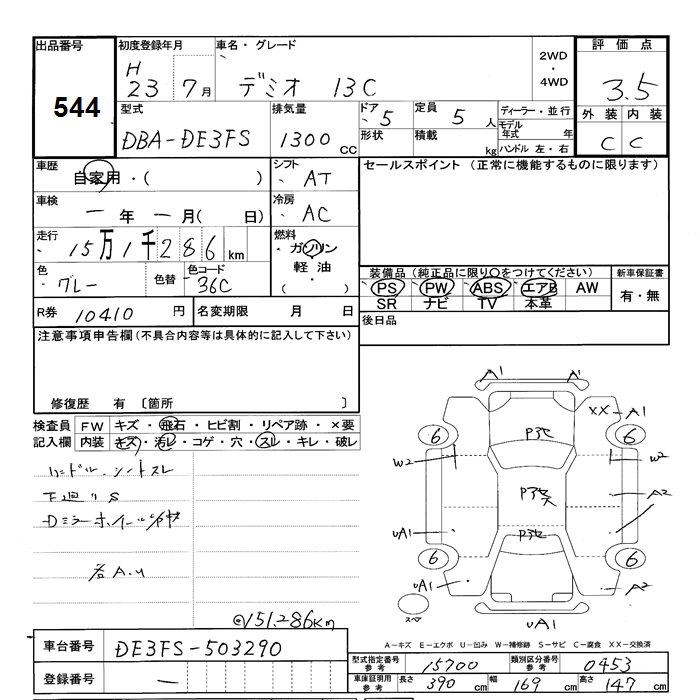 出品番号 初度登録年月 車名・グレード 2WD・4WD 評価点
544 H23 7月 デミオ 13C 3.5
型式 排気量 ドア 定員 ディーラー・並行 外装 内装
DBA-DE3FS 1300cc 5 5人 モデル年式 年 C C
形状 積載 kg ハンドル 左・右
車歴 シフト セールスポイント (正常に機能するものに限ります)
自家用・( ) AT
車検 冷房
一年一月( 日) AC
走行 燃料
15万1千286km ガソリン
色 色替 色コード 軽油 装備品 (純正品に限り○をつけてください) 新車保証書
グレー 36C PS PW ABS エアB AW 有・無
SR ナビ TV 本革
R券 10410円 名変期限 月 日 後日品
注意事項申告欄 (不具合内容等は具体的に記入して下さい)
修復歴 有 〔箇所 〕
検査員 FW キズ・飛石・ヒビ割・リペア跡・×要
記入欄 内装 キズ・汚レ・コゲ・穴・スレ・キレ・破レ
ハンドル、シートスレ
下廻りS
各A.U
@151.286km
A1 A1
XX-A1
P3C
6 6
W2 W2
A2
UA1
6 6
UA1 A2
UA1
スペア
A-キズ E-エクボ U-凹み W-補修跡 S-サビ C-腐食 XX-交換済
車台番号 DE3FS-503290
登録番号 一
型式指定番号 参考 15700 類別区分番号 参考 0453
車庫証明用 参考 長さ 390cm 幅 169cm 高さ 147cm